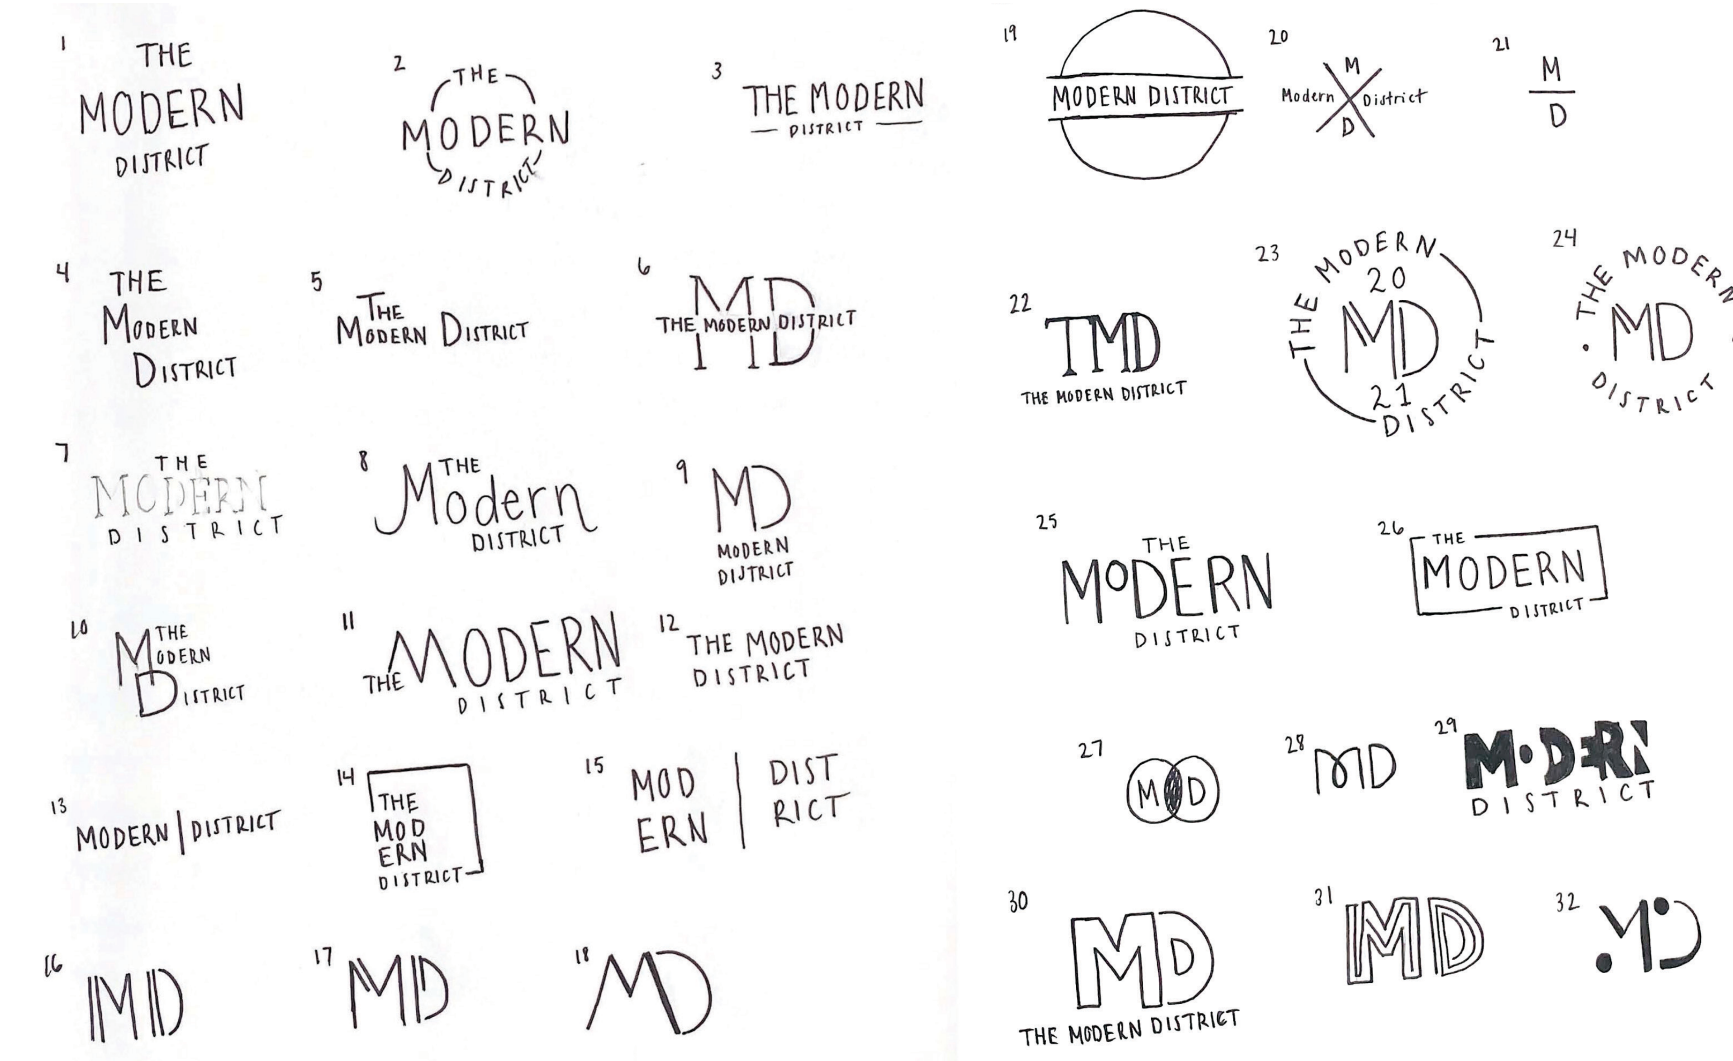 1
THE
MODERN
DISTRICT
2
THE
MODERN
DISTRICT
3
THE MODERN
DISTRICT
4
THE
MODERN
DISTRICT
5
THE
MODERN DISTRICT
6
MD
THE MODERN DISTRICT
7
THE
MODERN
DISTRICT
8
THE
Modern
DISTRICT
9
MD
MODERN
DISTRICT
10
THE
MODERN
DISTRICT
11
THE MODERN
DISTRICT
12
THE MODERN
DISTRICT
13
MODERN | DISTRICT
14
THE
MOD
ERN
DISTRICT
15
MOD
ERN
DIST
RICT
16
MD
17
MD
18
MD
19
MODERN DISTRICT
20
M
Modern District
D
21
M
D
22
TMD
THE MODERN DISTRICT
23
THE MODERN
20
MD
21
DISTRICT
24
THE MODERN
MD
DISTRICT
25
THE
MODERN
DISTRICT
26
THE
MODERN
DISTRICT
27
M D
28
MD
29
M•DERN
DISTRICT
30
MD
THE MODERN DISTRICT
31
MD
32
MD